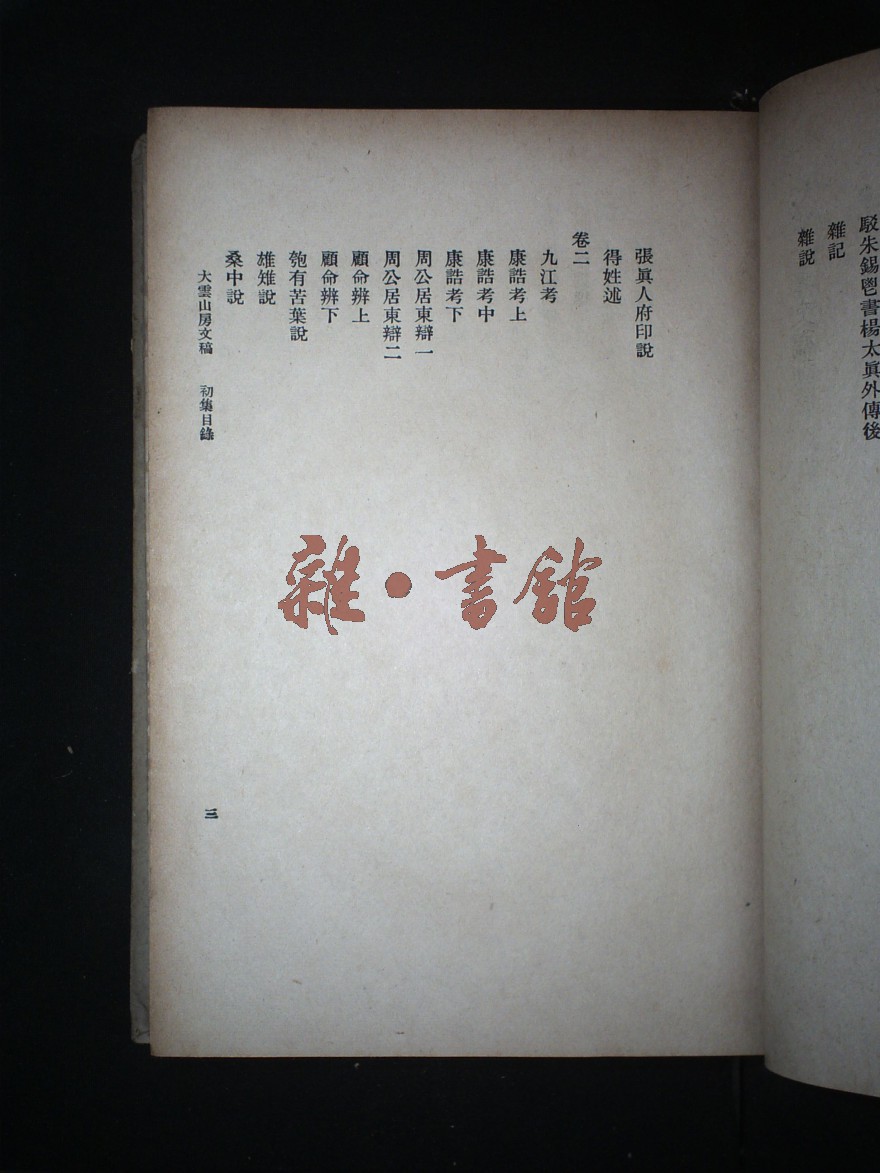 駁朱錫鬯書楊太眞外傳後
雜記
雜說
張眞人府印說
得姓述
卷二
九江考
康誥考上
康誥考中
康誥考下
周公居東辯一
周公居東辯二
顧命辨上
顧命辨下
匏有苦葉說
雄雉說
桑中說
大雲山房文稿 初集目錄
三
雜·書館